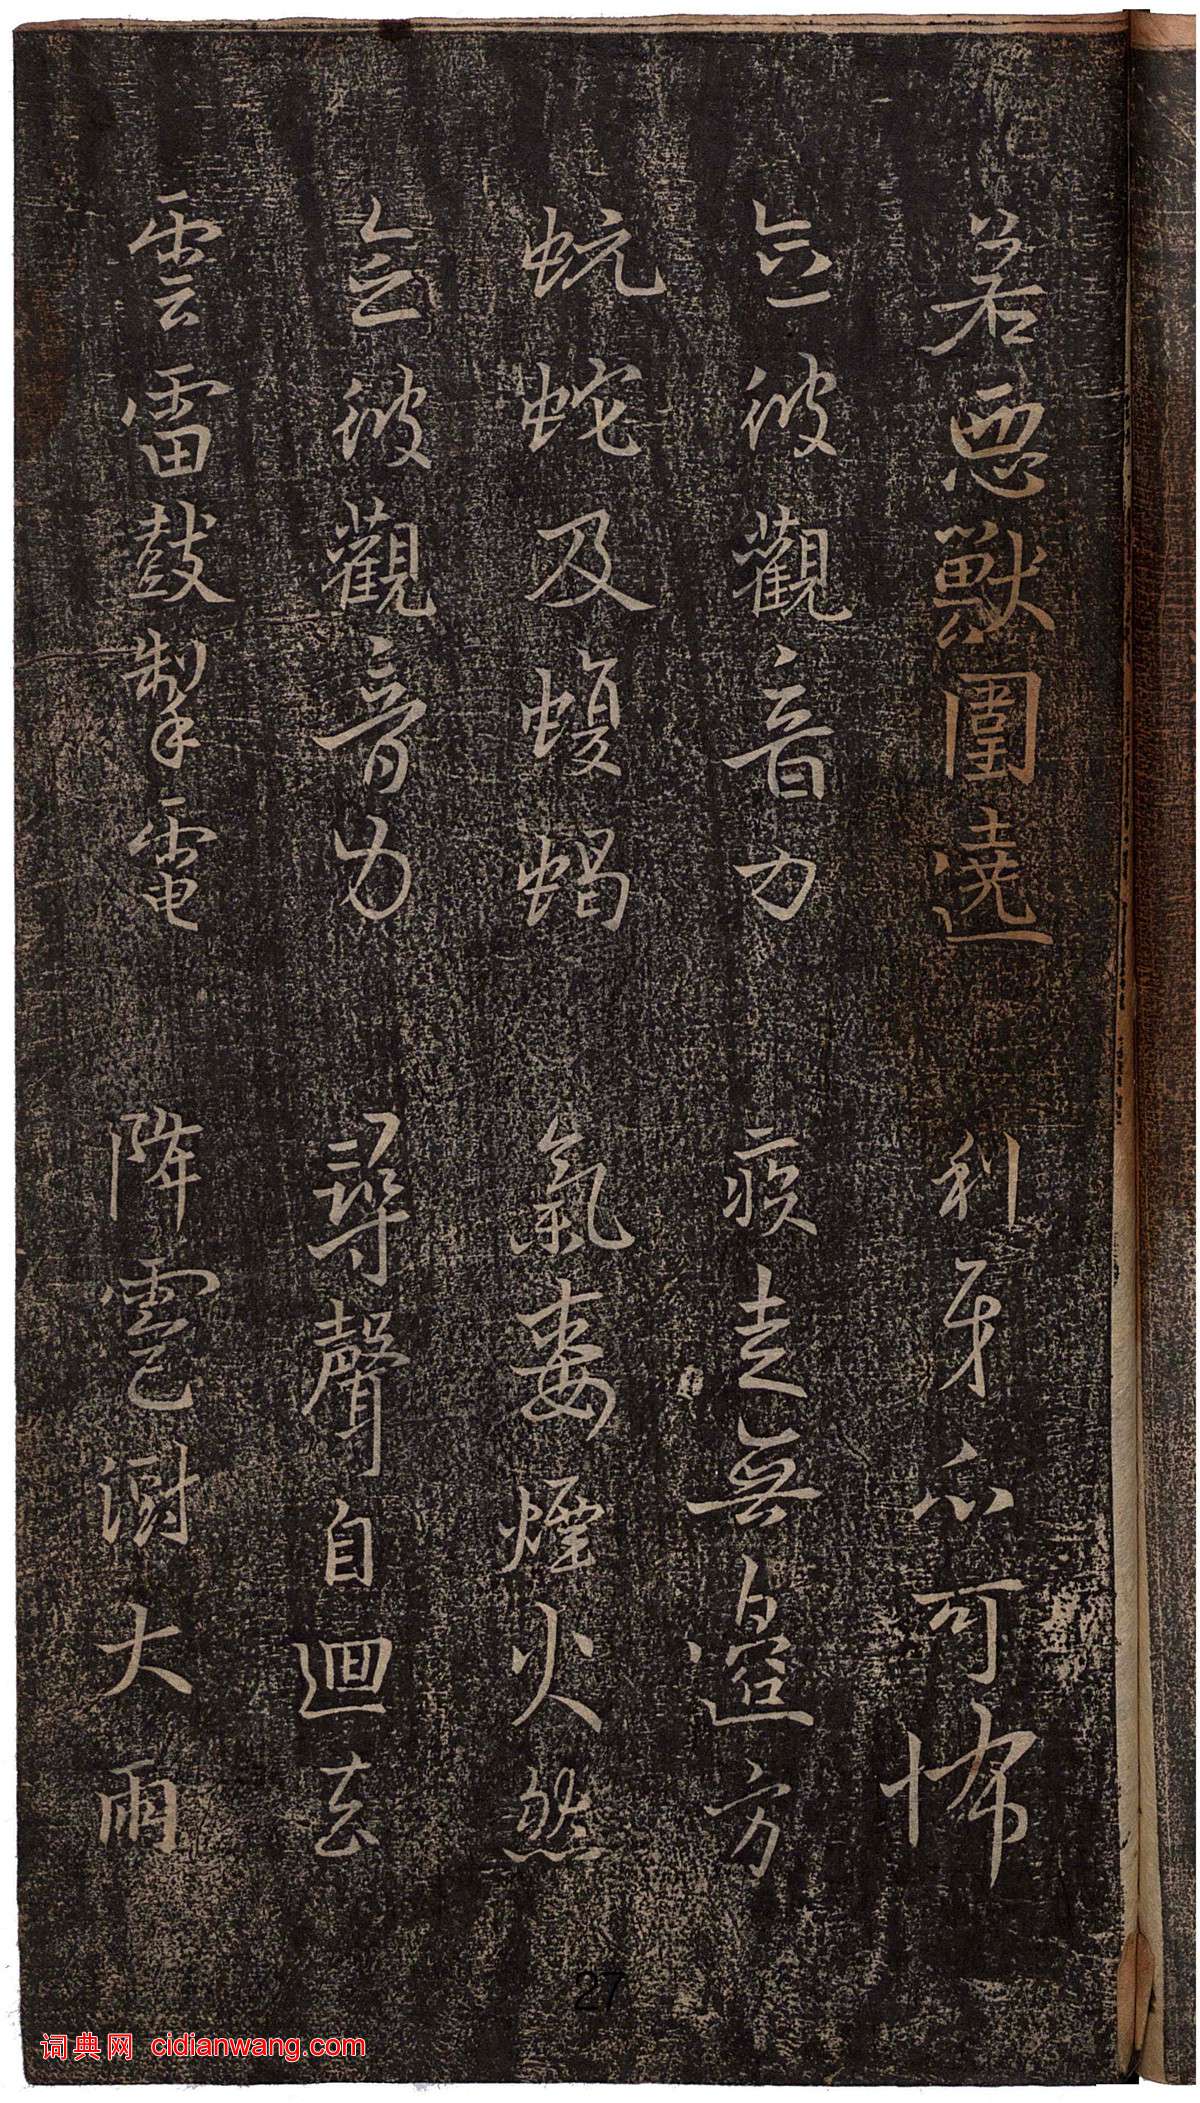 若惡獸圍遶 利牙爪可怖
念彼觀音力 疾走無邊方
蚖蛇及蝮蝎 氣毒煙火然
念彼觀音力 尋聲自迴去
雲雷鼓掣電 降雹澍大雨
27
词典网 cidianwang.com